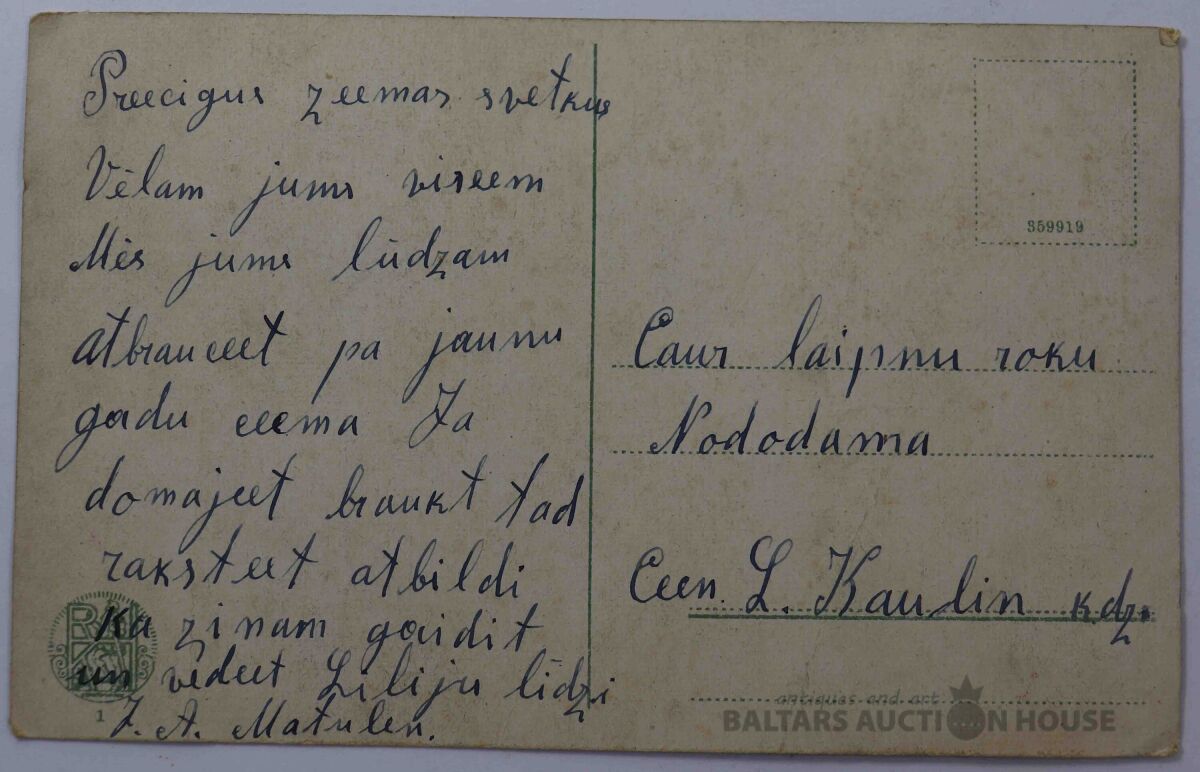 Preecigus zeemas svetkus
Vēlam jums viseem
Mēs jums lūdzam
atbrauceet pa jaunu
gadu ceema Ja
domajeet braukt tad
raksteet atbildi
ka zinam gaidit
un vedeet Liliju līdzi
J. A. Matulen.
359919
Caur laipnu roku
Nododama
Ceen. L. Kaulin kdz.
1
antiques and art
BALTARS AUCTION HOUSE